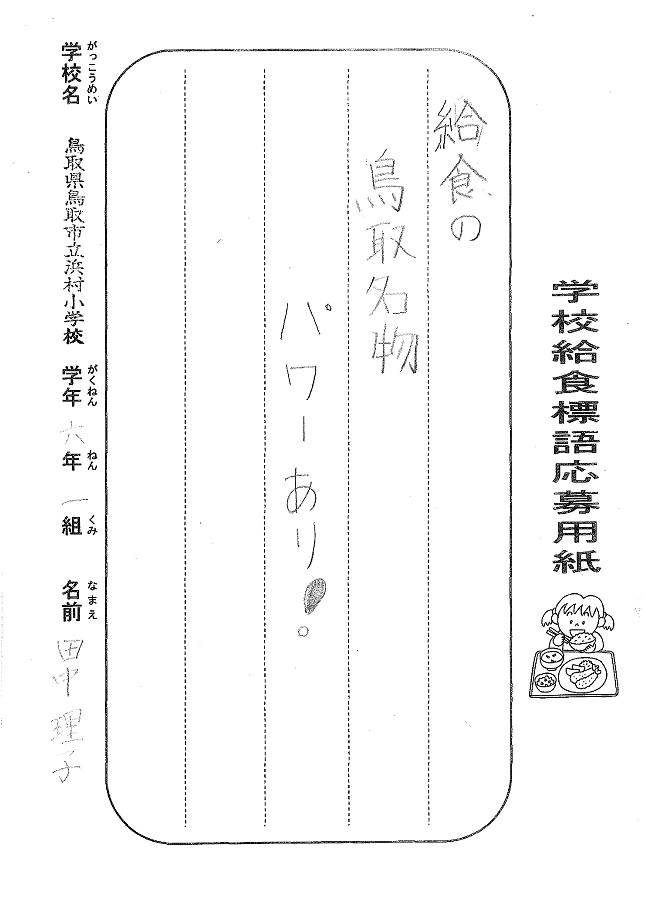 学校給食標語応募用紙
給食の
鳥取名物
パワーあり!
がっこうめい
学校名 鳥取県鳥取市立浜村小学校
がくねん ねん くみ
学年 六年 一組
なまえ
名前 田中理子